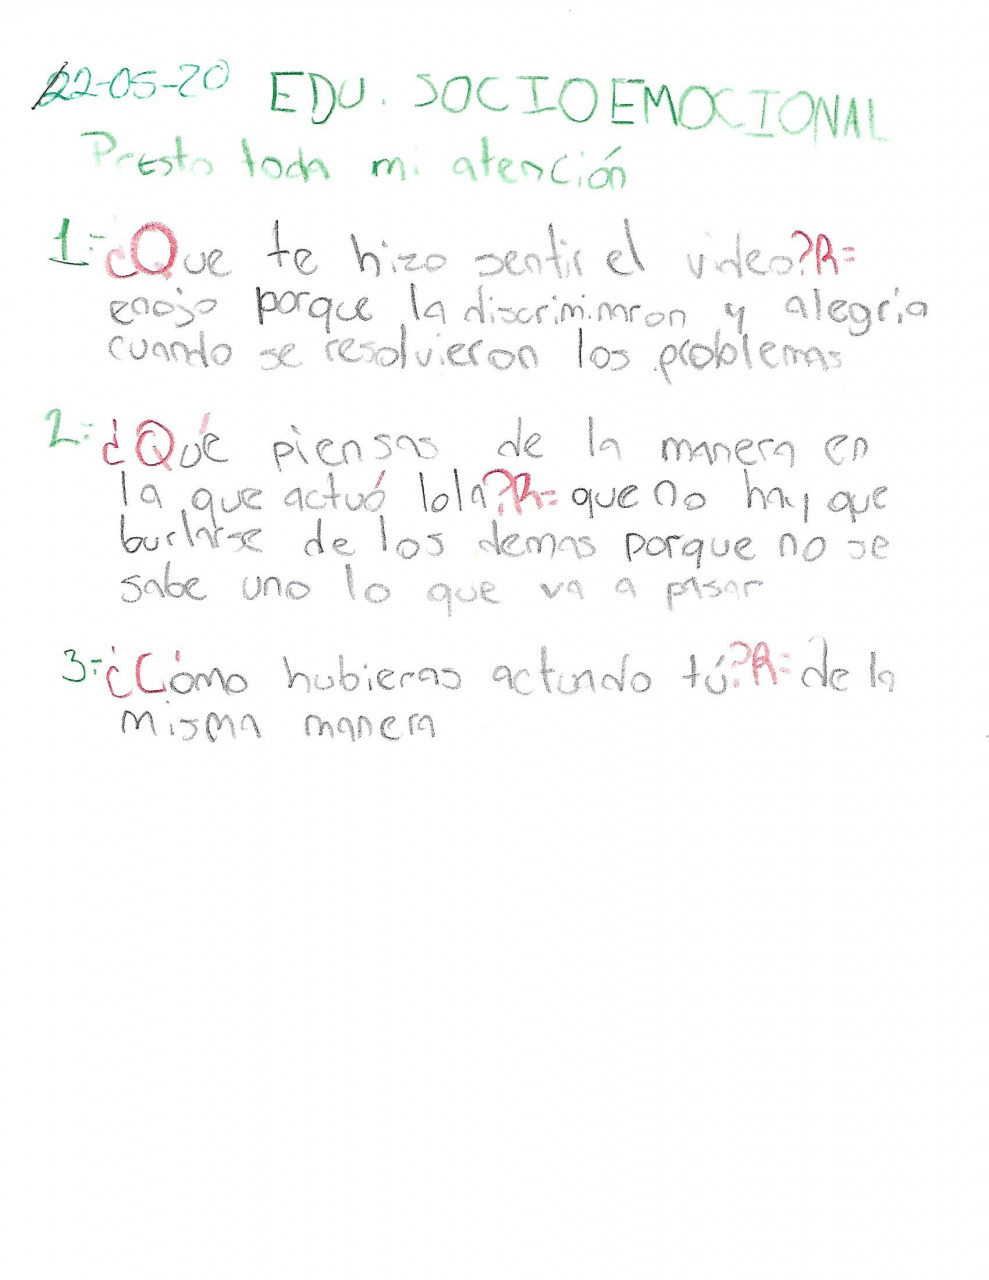 22-05-20 EDU. SOCIOEMOCIONAL
Presto toda mi atención
1:- ¿Que te hizo sentir el video?R=
enojo porque la discriminaron y alegria
cuando se resolvieron los problemas
2:- ¿Qué piensas de la manera en
la que actuó lola?R= que no hay que
burlarse de los demas porque no se
sabe uno lo que va a pasar
3:- ¿Cómo hubieras actuado tú?R= de la
misma manera